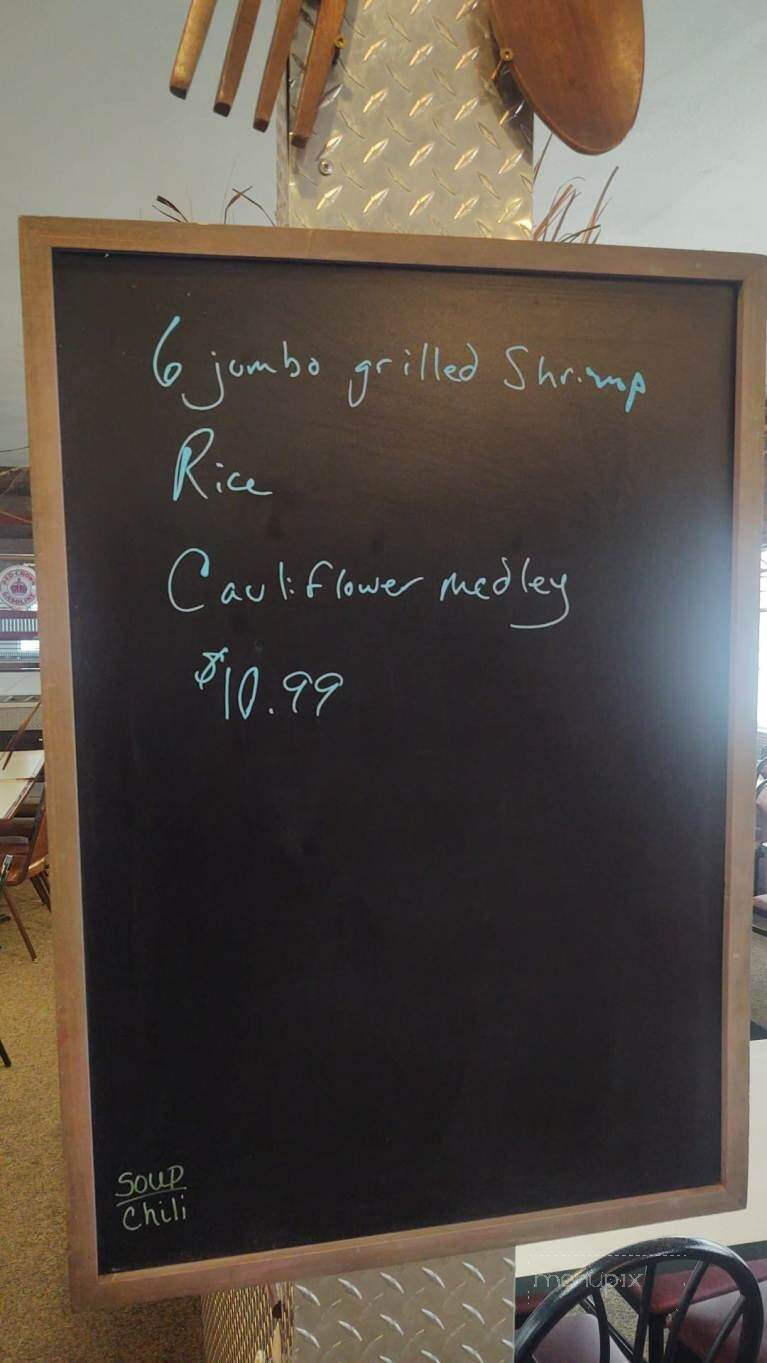 6 jumbo grilled Shrimp
Rice
Cauliflower medley
$10.99
SOUP
Chili
RED CROWN
GASOLINE
menupix